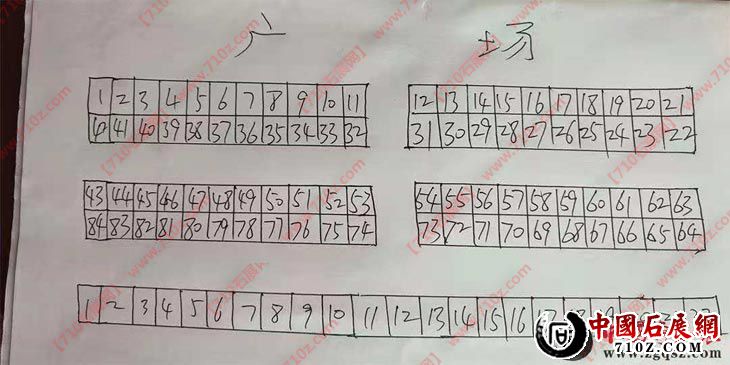 广 场
1 2 3 4 5 6 7 8 9 10 11 12 13 14 15 16 17 18 19 20 21
41 40 39 38 37 36 35 34 33 32 31 30 29 28 27 26 25 24 23 22
43 44 45 46 47 48 49 50 51 52 53 54 55 56 57 58 59 60 61 62 63
84 83 82 81 80 79 78 77 76 75 74 73 72 71 70 69 68 67 66 65 64
1 2 3 4 5 6 7 8 9 10 11 12 13 14 15 16
中國石展網
710Z.COM
www.zgqsz.com
【710石展网】www.710z.com